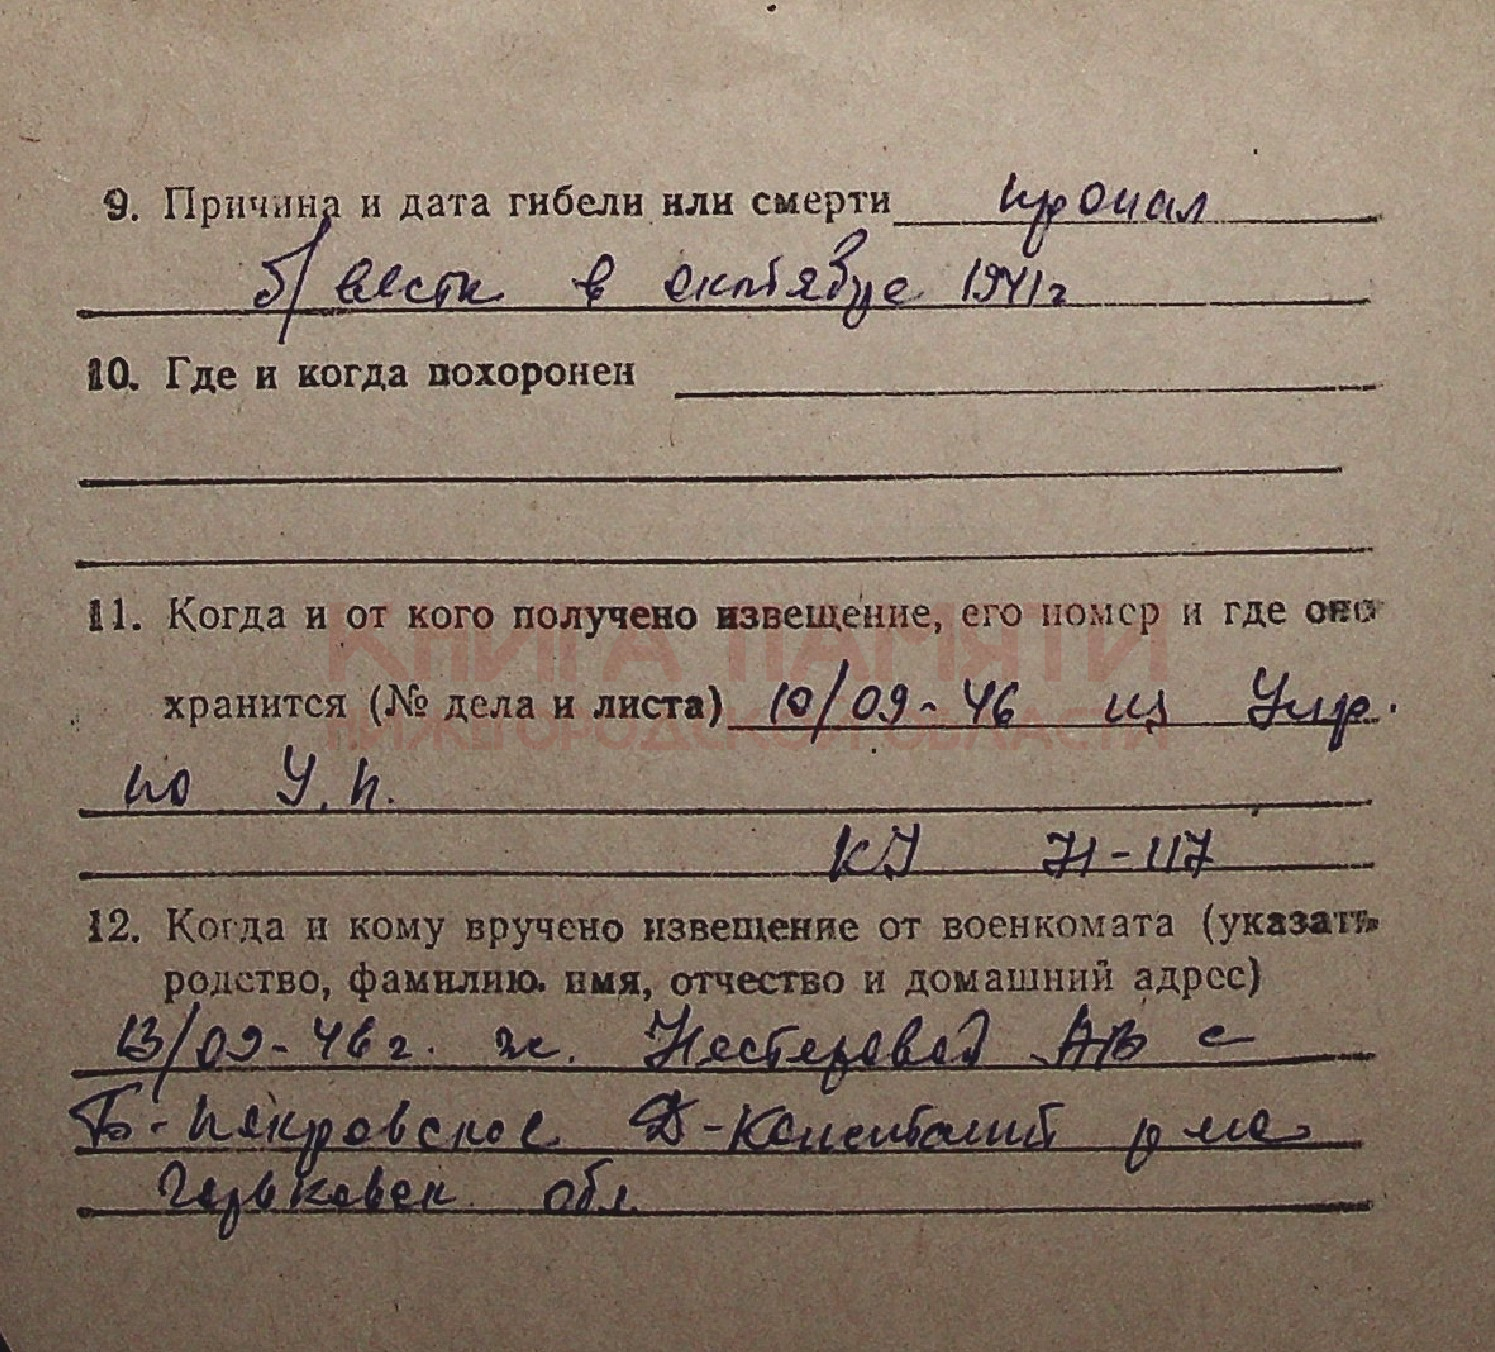 9. Причина и дата гибели или смерти пропал
б/вести в октябре 1941г
10. Где и когда похоронен
11. Когда и от кого получено извещение, его номер и где оно
КНИГА ПАМЯТИ
хранится (№ дела и листа) 10/09-46 из Упр.
НИЖЕГОРОДСКОЙ ОБЛАСТИ
по У.п.
71-117
12. Когда и кому вручено извещение от военкомата (указать
родство, фамилию. имя, отчество и домашний адрес)
13/09-46г. ж. Нестеровой АВ с
Б-Покровское Д-Констант р на
Горьковск обл